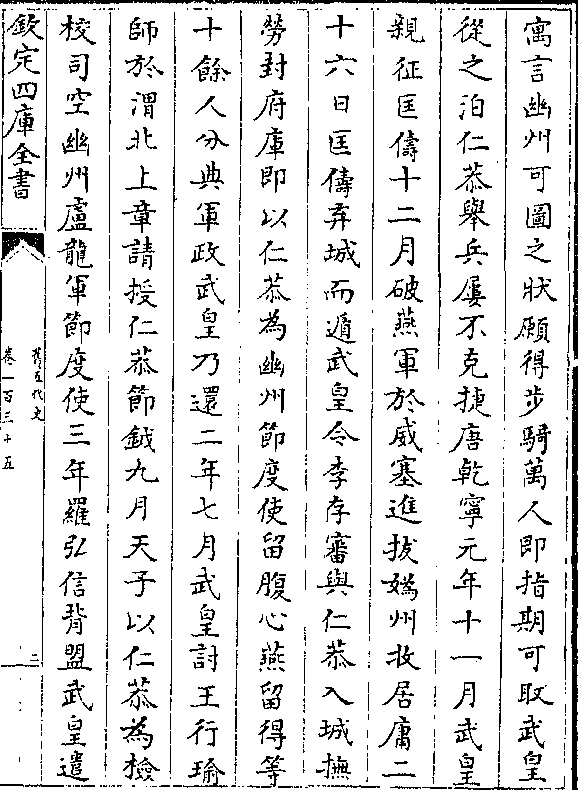 寓言幽州可圖之狀願得步騎萬人即指期可取武皇
從之洎仁恭舉兵屢不克捷唐乾寧元年十一月武皇
親征匡儔十二月破燕軍於威塞進拔媯州收居庸二
十六日匡儔弃城而遁武皇令李存審與仁恭入城撫
勞封府庫即以仁恭為幽州節度使留腹心燕留得等
十餘人分典軍政武皇乃還二年七月武皇討王行瑜
師於渭北上章請授仁恭節鉞九月天子以仁恭為檢
校司空幽州盧龍軍節度使三年羅弘信背盟武皇遣
欽定四庫全書
舊五代史
卷一百三十五
二